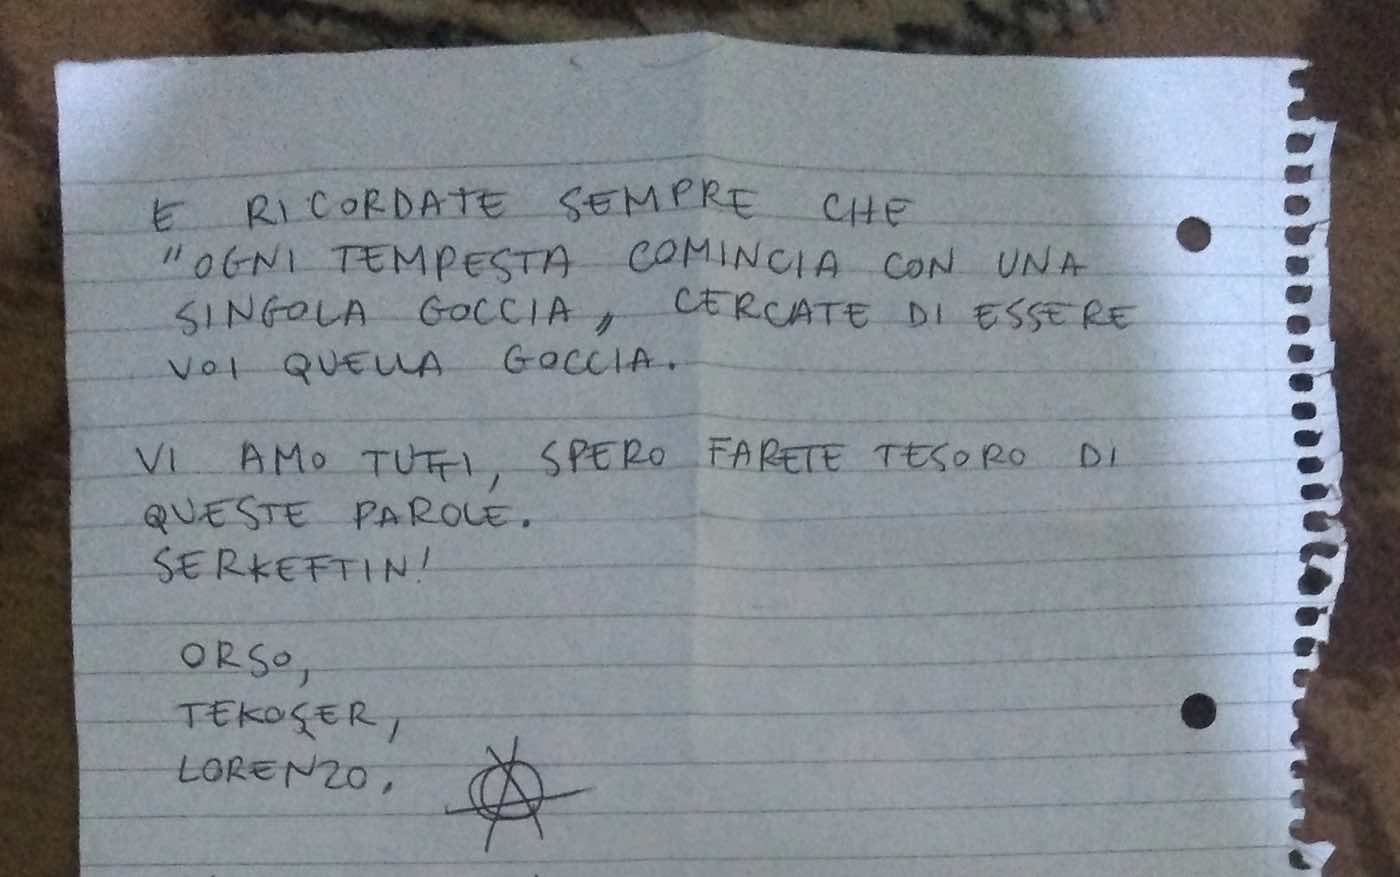 E RICORDATE SEMPRE CHE
"OGNI TEMPESTA COMINCIA CON UNA
SINGOLA GOCCIA", CERCATE DI ESSERE
VOI QUELLA GOCCIA.
VI AMO TUTTI, SPERO FARETE TESORO DI
QUESTE PAROLE.
SERKEFTIN!
ORSO,
TEKOŞER,
LORENZO.